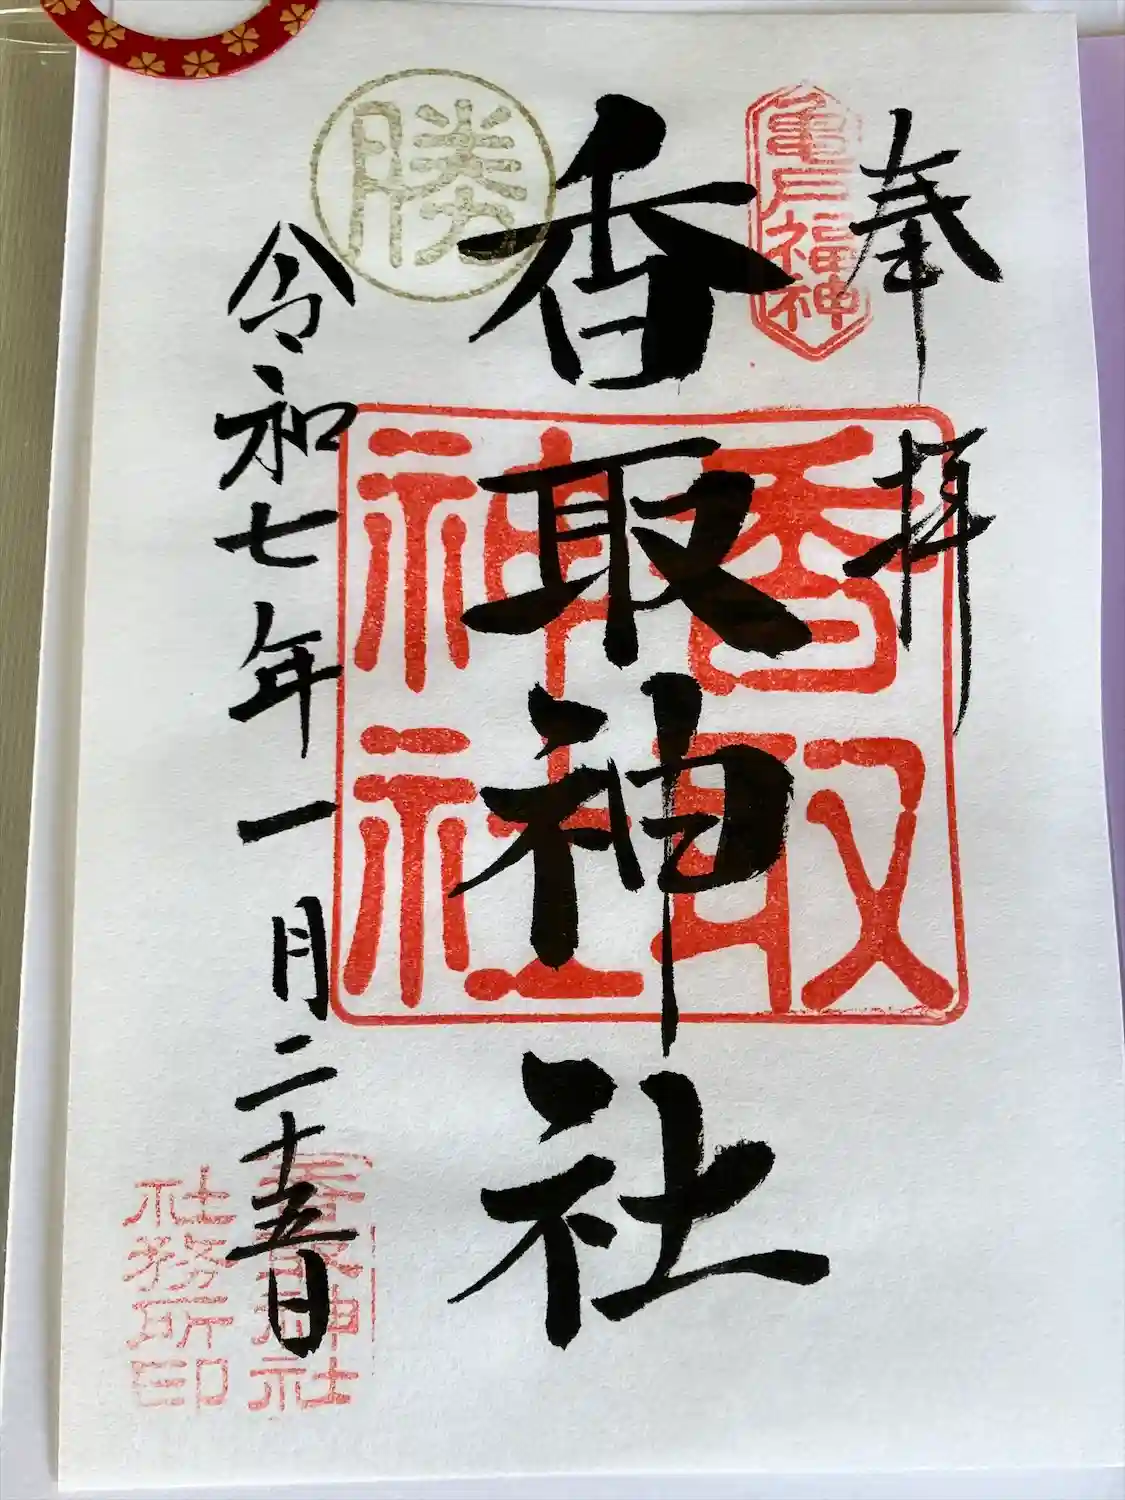 奉拝
亀戸福神
香取神社
香取
神社
勝
令和七年一月二十五日
香取神社
社務所印